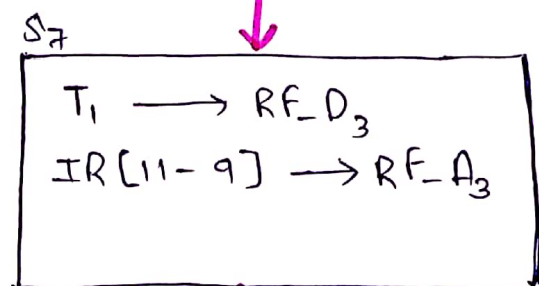 S₇
T₁ → RF_D₃
IR[11-9] → RF_A₃